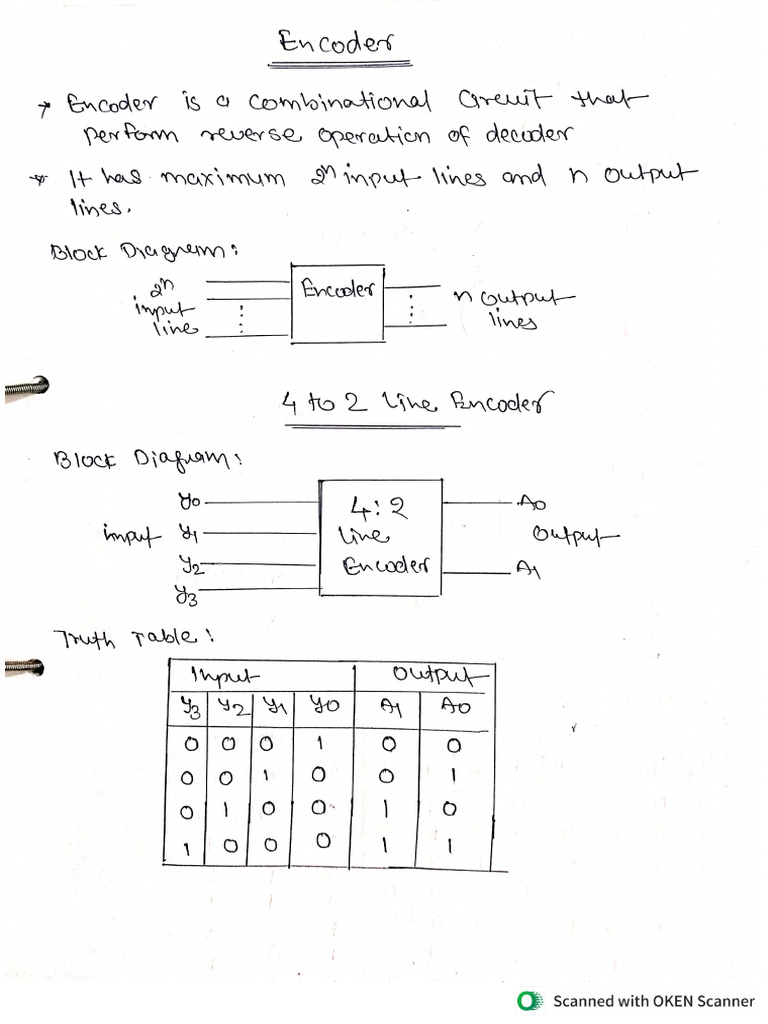 Encoder
→ Encoder is a combinational circuit that
perform reverse operation of decoder
* It has maximum 2ⁿ input lines and n output
lines.
Block Diagram:
2ⁿ
input
line
Encoder
n output
lines
4 to 2 line Encoder
Block Diagram:
input
Y0
Y1
Y2
Y3
4:2
line
Encoder
A0
A1
Output
Truth Table:
Input Output
Y3 Y2 Y1 Y0 A1 A0
0 0 0 1 0 0
0 0 1 0 0 1
0 1 0 0 1 0
1 0 0 0 1 1
Scanned with OKEN Scanner